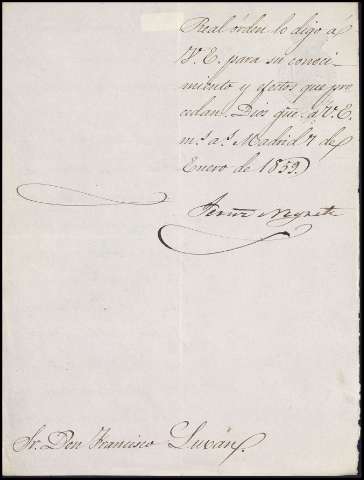 Real órden lo digo á
V. E. para su conoci-
miento y efectos que pro
cedan. Dios gue. á V. E.
m.s a.s Madrid 7 de
Enero de 1859.
Negrete
Sr. Don Francisco Luxán.